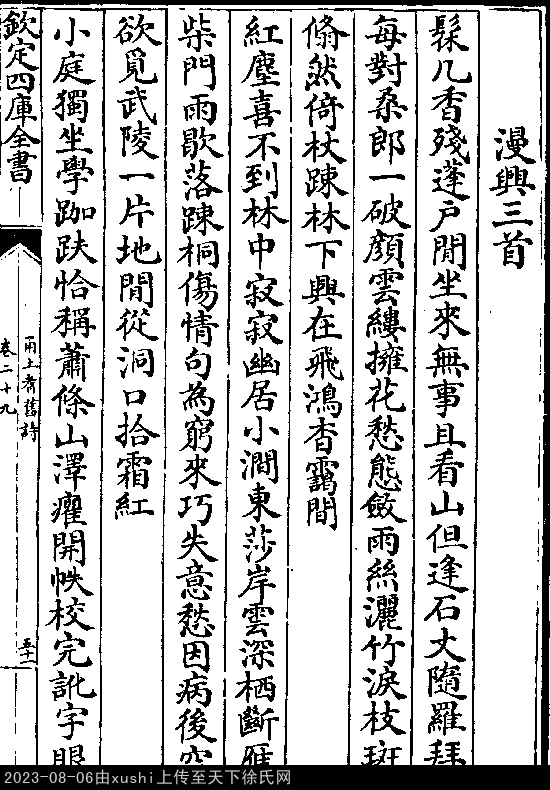 漫興三首
髹几香殘蓬戶閒坐來無事且看山但逢石丈隨羅拜
每對桑郎一破顔雲縷擁花愁態斂雨絲灑竹淚枝斑
翛然倚杖踈林下興在飛鴻杳靄間
紅塵喜不到林中寂寂幽居小澗東莎岸雲深栖斷雁
柴門雨歇落踈桐傷情句為窮來巧失意愁因病後空
欲覓武陵一片地閒從洞口拾霜紅
小庭獨坐學跏趺恰稱蕭條山澤癯開帙校完訛字眼
欽定四庫全書
甬上耆舊詩
卷二十九
五十一
2023-08-06由xushi上传至天下徐氏网